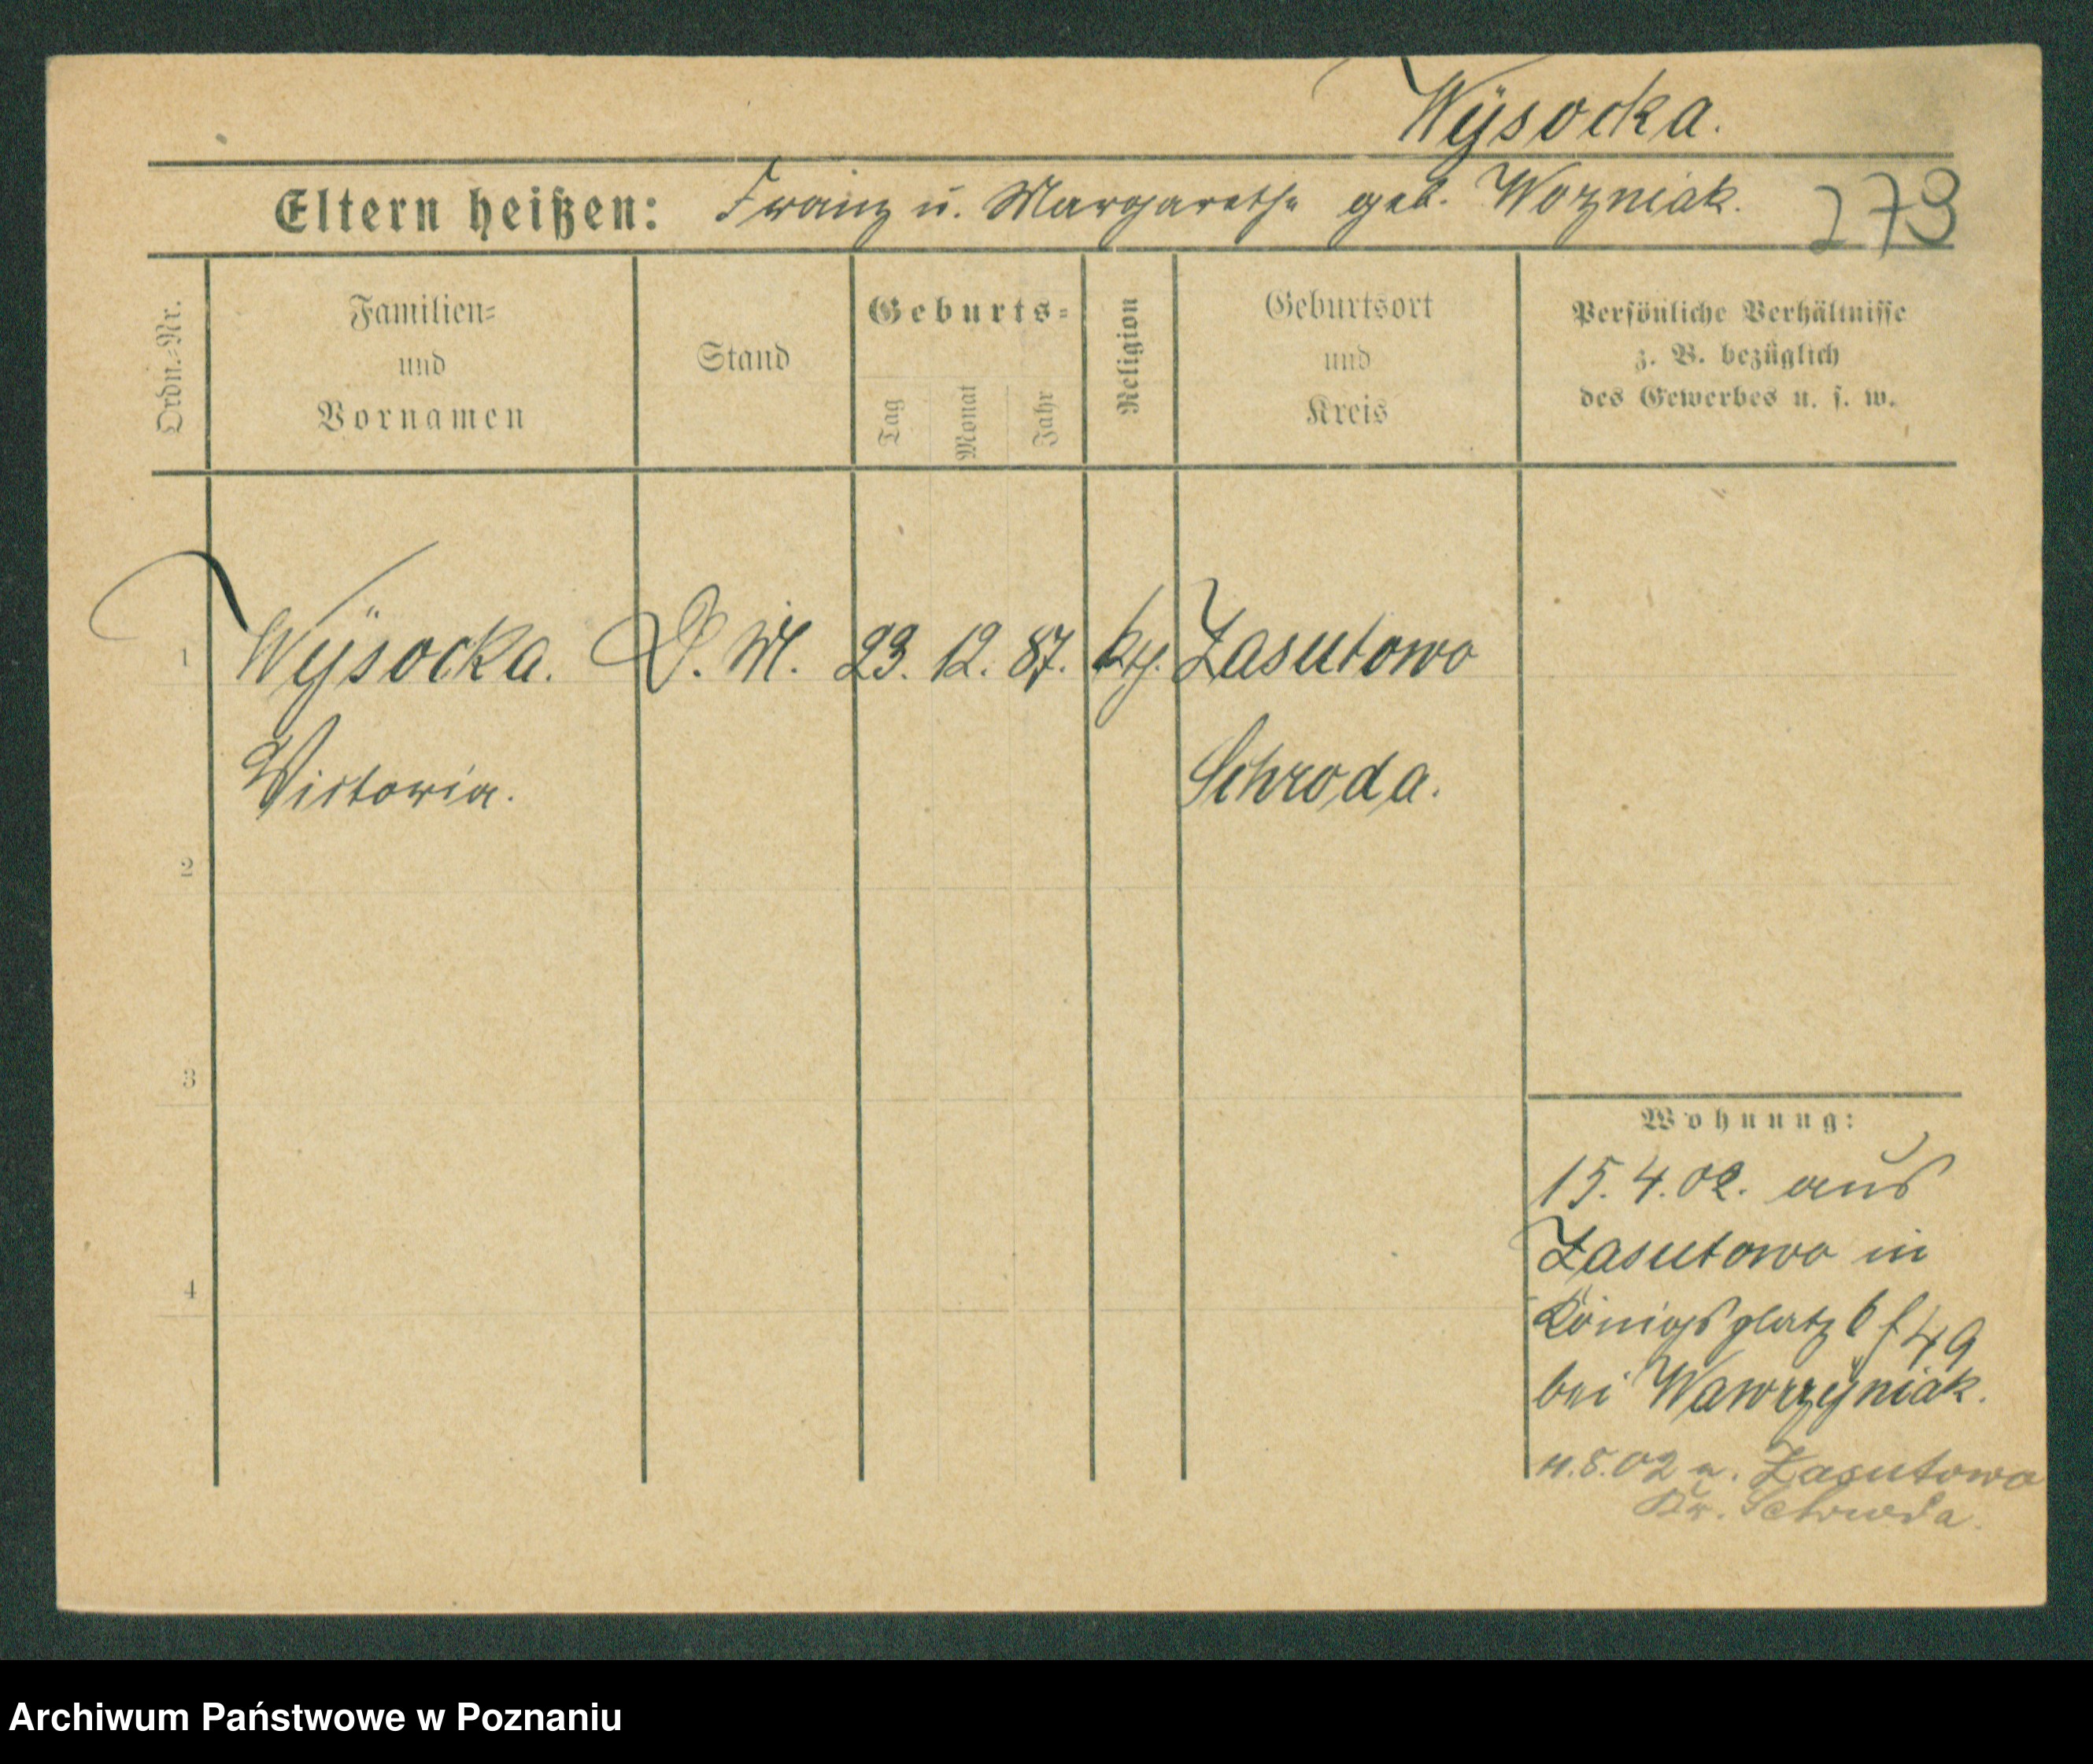 Wÿsocka.
Eltern heißen: Franz u. Margarethe geb. Wozniak. 273
Ordn.-Nr.
Familien-
und
Vornamen
Stand
Geburts-
Tag
Monat
Jahr
Religion
Geburtsort
und
Kreis
Persönliche Verhältnisse
z. B. bezüglich
des Gewerbes u. s. w.
1 Wÿsocka. D. M. 23. 12. 87. Zasutowo
Victoria. Schroda.
2
3
4
Wohnung:
15. 4. 02. aus
Zasutowo in
Königsplatz 6 f 49
bei Wawrzÿniak.
5.02 n. Zasutowo
Kr. Schroda.
Archiwum Państwowe w Poznaniu